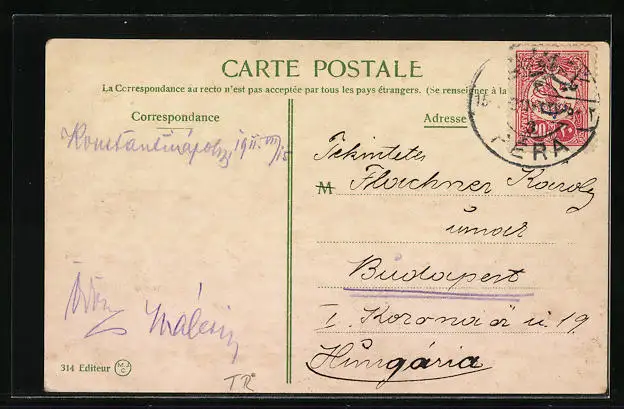 CARTE POSTALE
La Correspondance au recto n'est pas acceptée par tous les pays étrangers. (Se renseigner à la
Correspondance
Adresse
Konstantinápoly, 1911. VII/15
Tekintetes
M Flachner Károly
úrnak
Budapest
I. Koronaőr u. 19
Hungária
PERA
15
20
314 Editeur
M.J.C.
TR